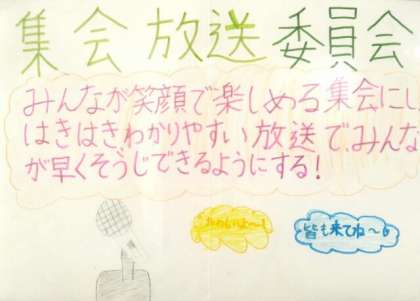 集会放送委員会
みんなが笑顔で楽しめる集会にし
はきはきわかりやすい放送で、みんな
が早くそうじできるようにする!
皆も来てね～